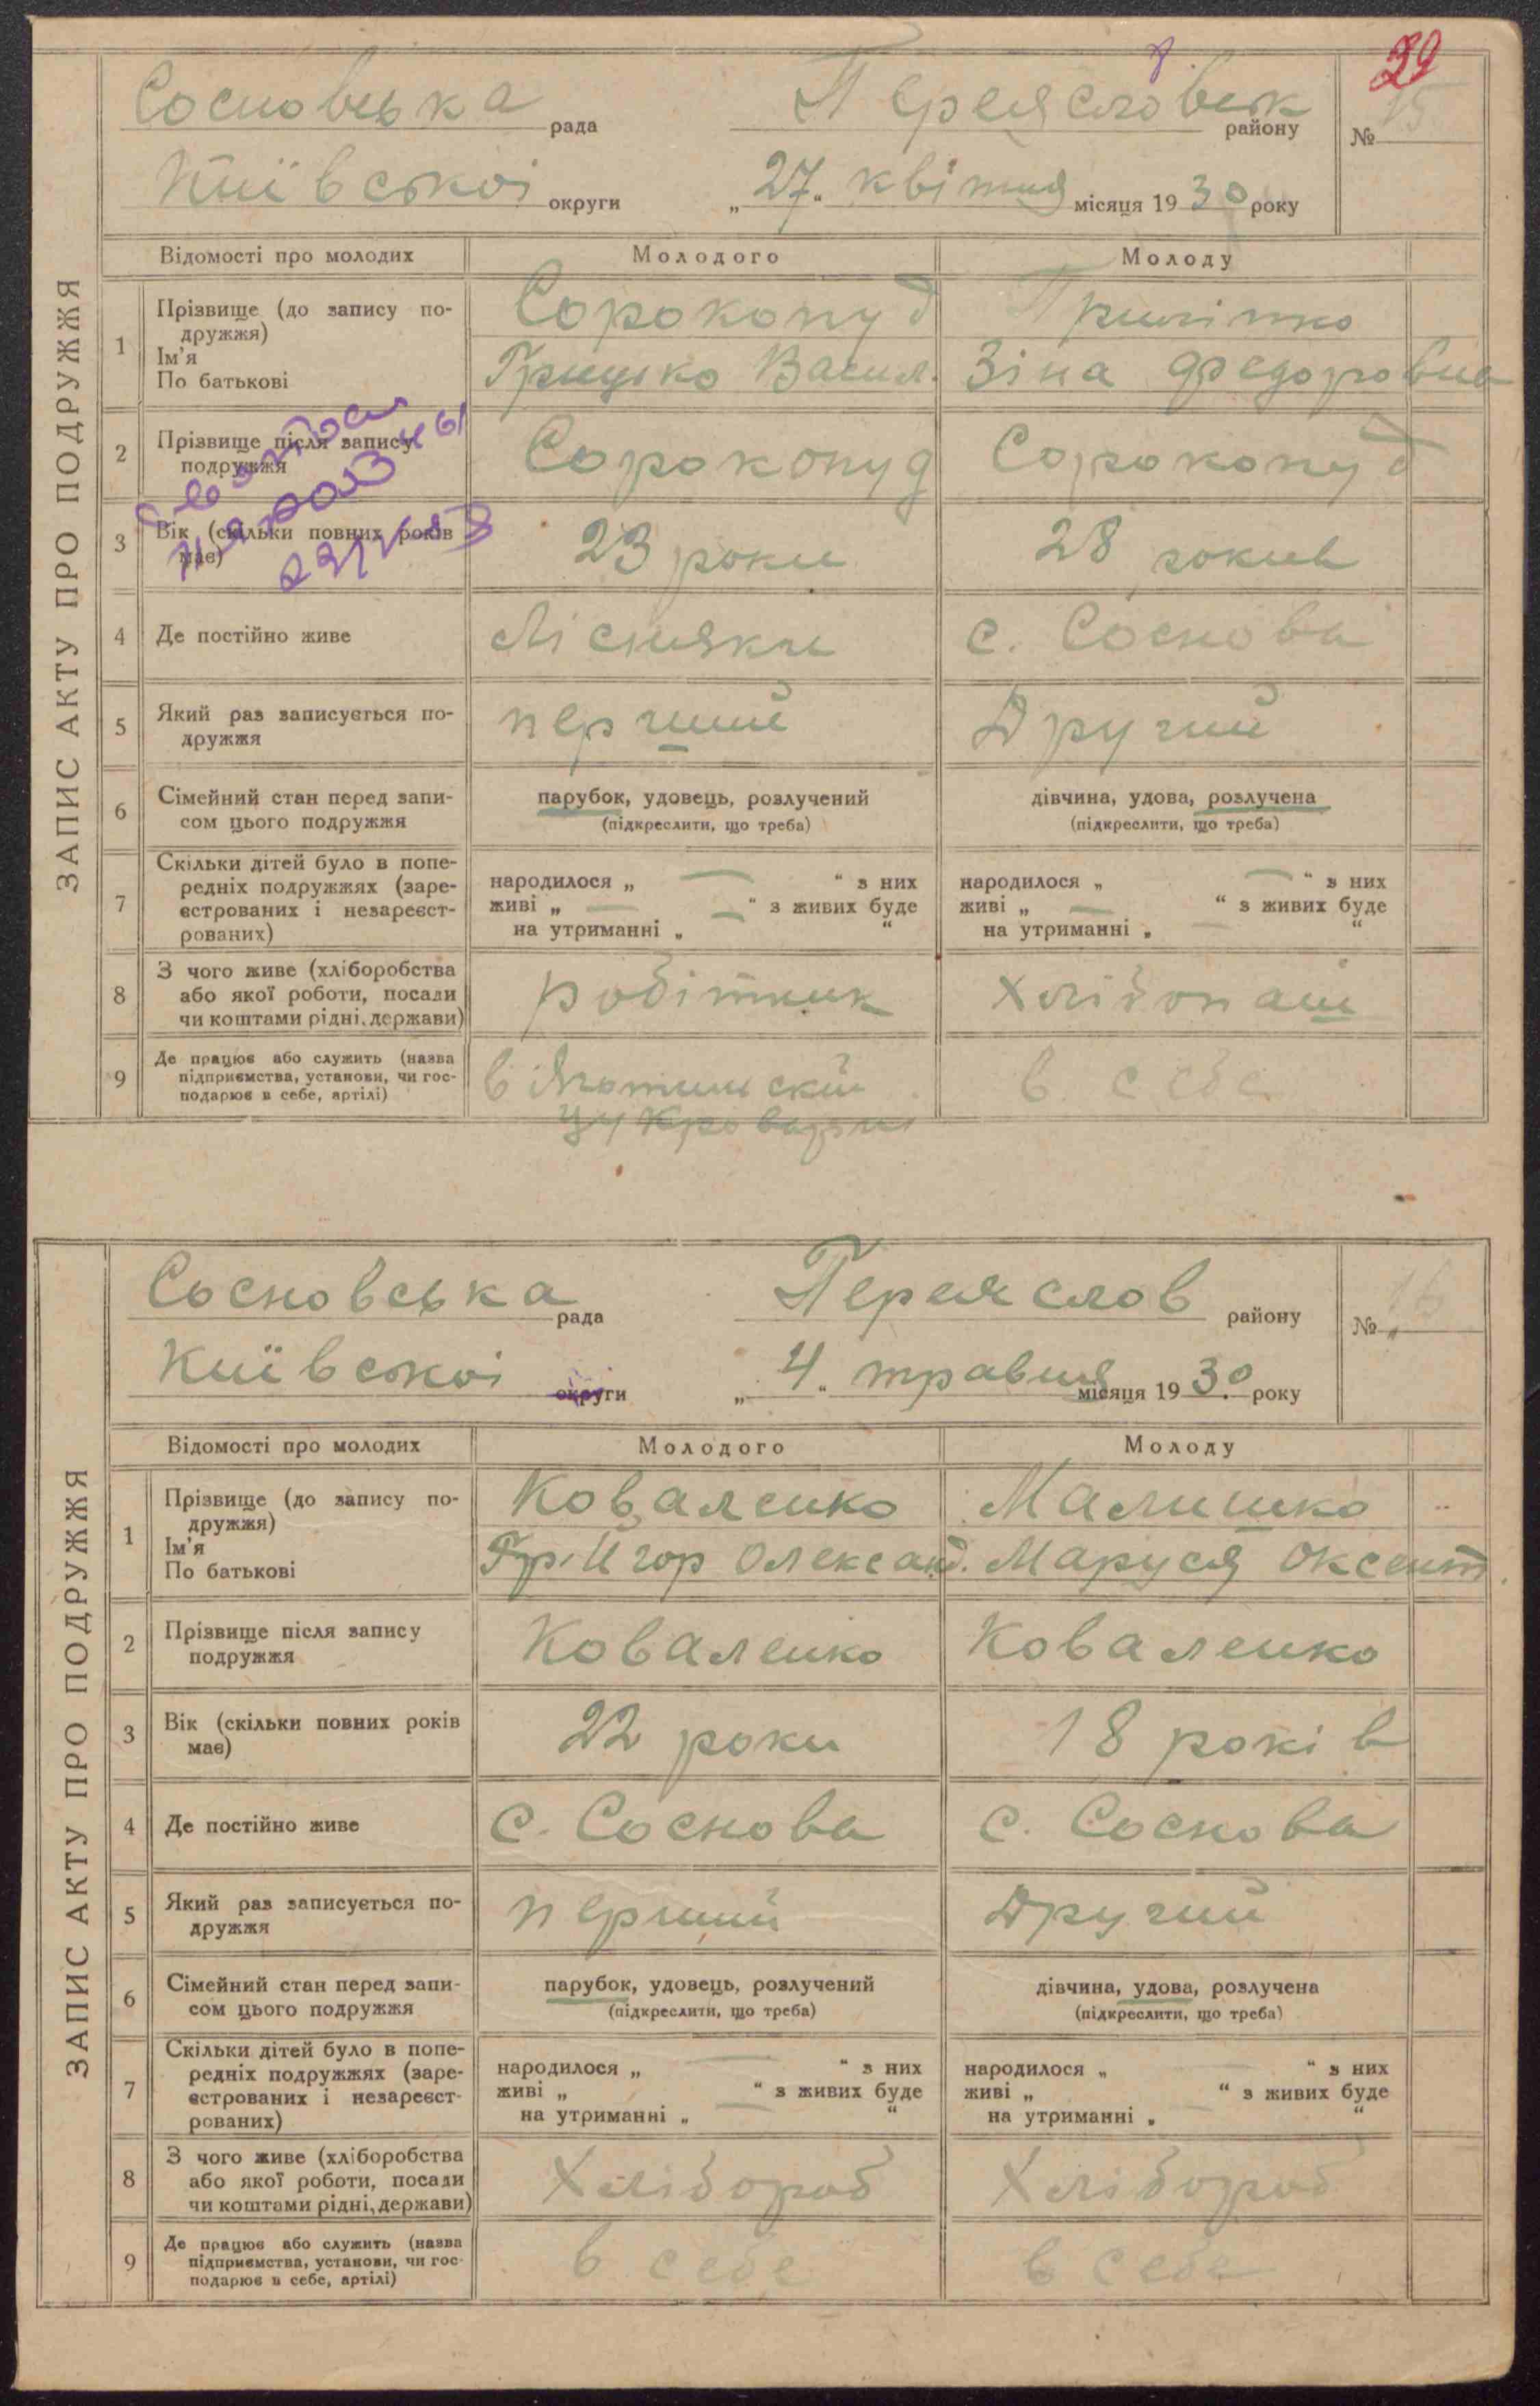 39
Сосновська рада Переяславськ району № 15
Київської округи „27“ квітня місяця 1930 року
ЗАПИС АКТУ ПРО ПОДРУЖЖЯ
Відомості про молодих Молодого Молоду
1 Прізвище (до запису по-
дружжя) Сорокопуд
Ім'я
По батькові Грицько Васил. Зіна Федоровна
2 Прізвище після запису
подружжя Сорокопуд Сорокопуд
3 Вік (скільки повних років
має) 23 роки 28 років
4 Де постійно живе Лісняки с. Соснова
5 Який раз записується по-
дружжя перший Другий
6 Сімейний стан перед запи-
сом цього подружжя
парубок, удовець, розлучений дівчина, удова, розлучена
(підкреслити, що треба) (підкреслити, що треба)
7 Скільки дітей було в попе-
редніх подружжях (заре-
єстрованих і незареєст-
рованих)
народилося „ — “ з них народилося „ — “ з них
живі „ — “ з живих буде живі „ — “ з живих буде
на утриманні „ “ на утриманні „ “
8 З чого живе (хліборобства
або якої роботи, посади
чи коштами рідні, держави) робітник Хлібопаш
9 Де працює або служить (назва
підприємства, установи, чи гос-
подарює в себе, артілі) в Яготинскій в себе
цукроварни
Сосновська рада Переяслов району № 16
Київської округи „4“ травня місяця 1930 року
ЗАПИС АКТУ ПРО ПОДРУЖЖЯ
Відомості про молодих Молодого Молоду
1 Прізвище (до запису по-
дружжя) Коваленко Малишко
Ім'я
По батькові Григор Олександ. Маруся Оксент.
2 Прізвище після запису
подружжя Коваленко Коваленко
3 Вік (скільки повних років
має) 22 роки 18 років
4 Де постійно живе с. Соснова с. Соснова
5 Який раз записується по-
дружжя перший Другий
6 Сімейний стан перед запи-
сом цього подружжя
парубок, удовець, розлучений дівчина, удова, розлучена
(підкреслити, що треба) (підкреслити, що треба)
7 Скільки дітей було в попе-
редніх подружжях (заре-
єстрованих і незареєст-
рованих)
народилося „ — “ з них народилося „ “ з них
живі „ — “ з живих буде живі „ — “ з живих буде
на утриманні „ “ на утриманні „ “
8 З чого живе (хліборобства
або якої роботи, посади
чи коштами рідні, держави) Хлібороб Хлібороб
9 Де працює або служить (назва
підприємства, установи, чи гос-
подарює в себе, артілі) в себе в себе